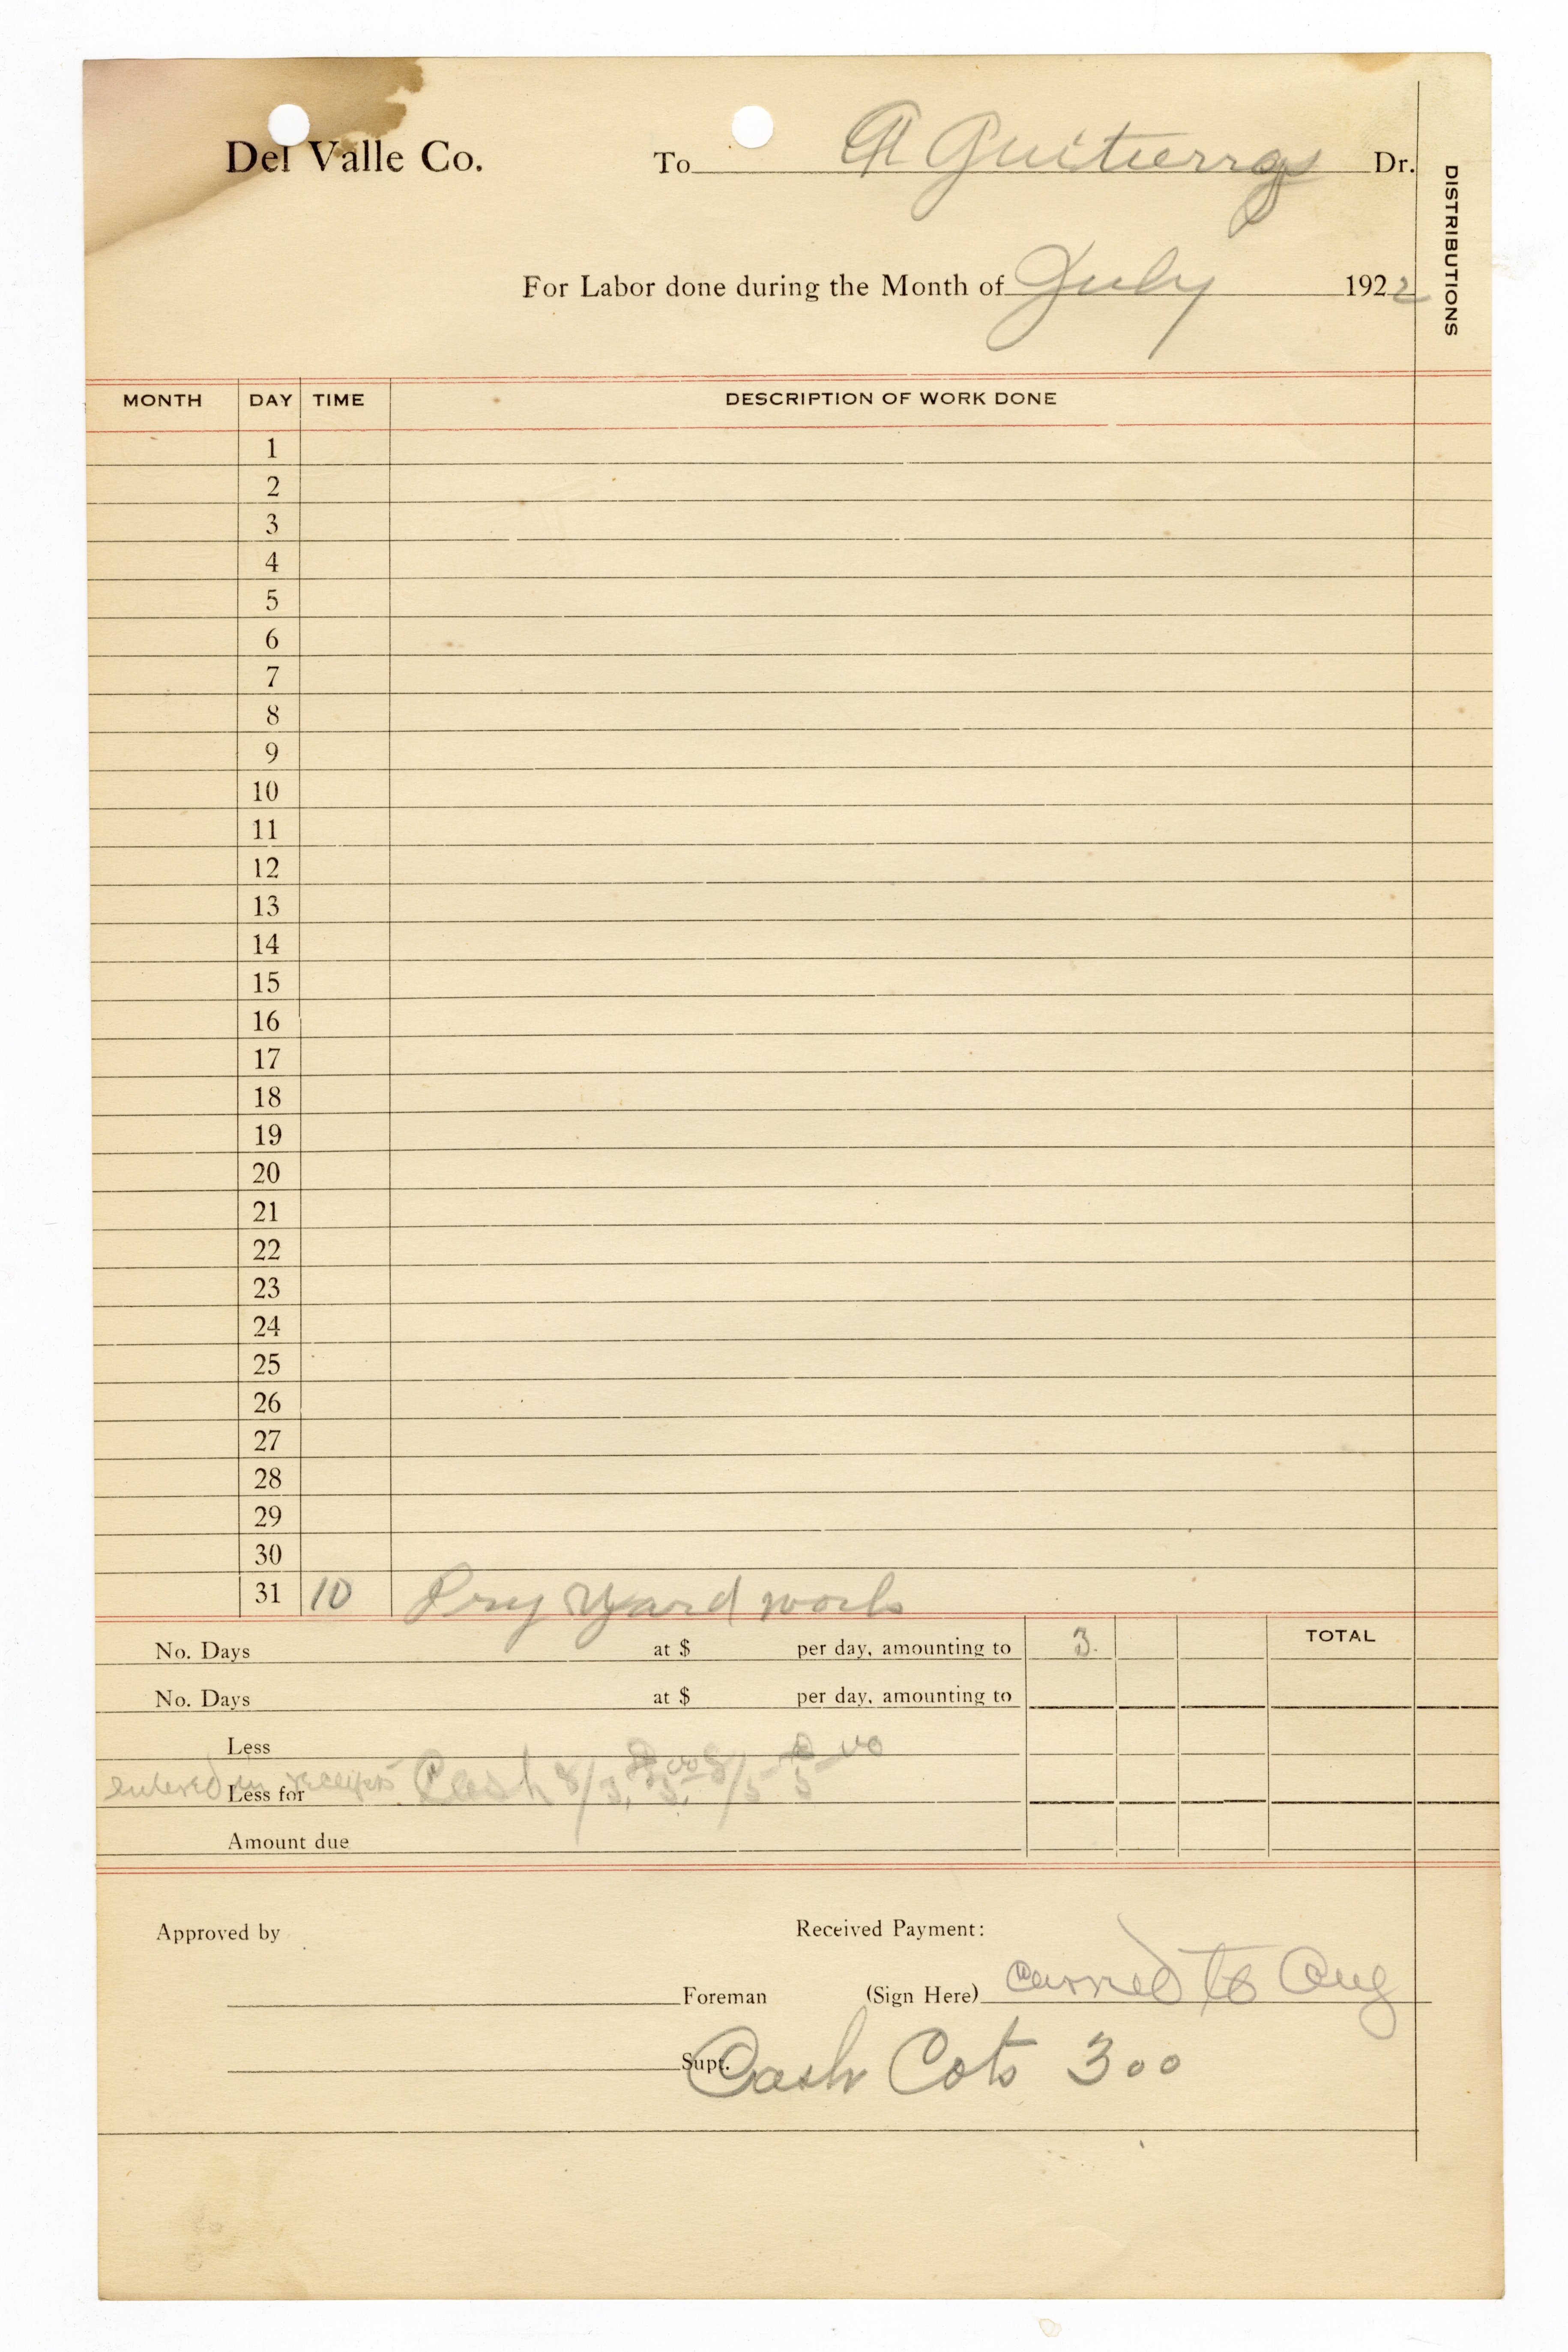 Del Valle Co. To A Guitierrgs Dr.
DISTRIBUTIONS
For Labor done during the Month of July 1922
MONTH DAY TIME DESCRIPTION OF WORK DONE
1
2
3
4
5
6
7
8
9
10
11
12
13
14
15
16
17
18
19
20
21
22
23
24
25
26
27
28
29
30
31 10 Dry Yard work
No. Days at $ per day, amounting to 3. TOTAL
No. Days at $ per day, amounting to
Less
entered in receipts Less for Cash 8/3, 8/5
Amount due
Approved by Received Payment:
Foreman (Sign Here) carried to Aug
Supt. Cash Cots 300